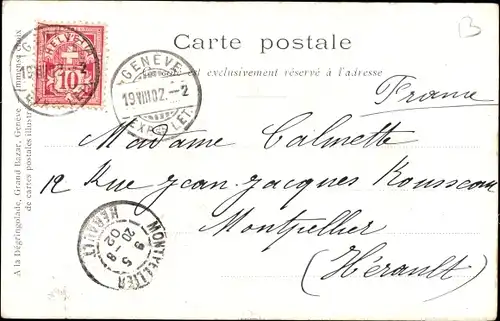 Carte postale
Ce côté est exclusivement réservé à l'adresse
HELVETIA
10
GENÈVE
19 VIII 02. —2
EXP. LET.
France
Madame Calmette
12 Rue Jean-Jacques Rousseau
Montpellier
(Hérault)
MONTPELLIER
20 -8
02
HERAULT
A la Dégringolade, Grand Bazar, Genève. Immense choix
de cartes postales illustrées
B